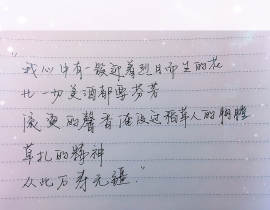 "我心中有一簇迎着烈日而生的花
比一切美酒都要芬芳
滚烫的馨香淹没过稻草人的胸膛
草扎的精神
从此万寿无疆."